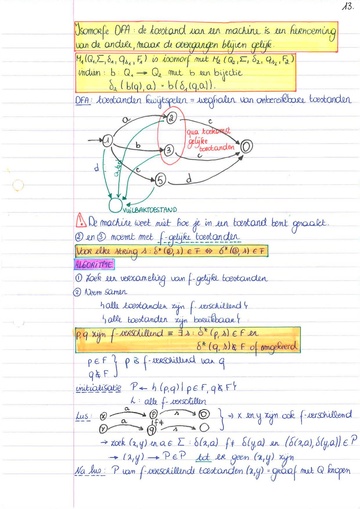 13.
Isomorfe DFA: de toestand van een machine is een hernoeming
van de andere, maar de overgangen blijven gelijk
M₁(Q₁,Σ,δ₁,q₁₀,F₁) is isomorf met M₂(Q₂,Σ,δ₂,q₂₀,F₂)
indien: b: Q₁ → Q₂ met b een bijectie
δ₂(b(q),a) = b(δ₁(q,a)).
DFA: toestanden kwijtspelen = weghalen van onbereikbare toestanden
a 2 c
1 b 3 c
qua toekomst
gelijke
toestanden
d c a,b,c 5 d
VUILBAKTOESTAND
⚠ De machine weet niet hoe je in een toestand bent geraakt.
② en ③ noemt met f-gelijke toestanden
Voor elke string s: δ*(②,s) ∈ F ⇔ δ*(③,s) ∈ F
ALGORITME
① Zoek een verzameling van f-gelijke toestanden
② Neem samen
↳ alle toestanden zijn f-verschillend
↳ alle toestanden zijn bereikbaar
p,q zijn f-verschillend = ∃ s: δ*(p,s) ∈ F en
δ*(q,s) ∉ F of omgekeerd
p ∈ F
q ∉ F } p is f-verschillend van q
initialisatie P ← {(p,q) | p ∈ F, q ∉ F}
↳: alle f-verschillen
Lus: x a p s
y a q s
f≠
} → x en y zijn ook f-verschillend
→ zoek (x,y) en a ∈ Σ: δ(x,a) f≠ δ(y,a) en (δ(x,a),δ(y,a)) ∈ P
→ (x,y) → P ∈ P tot er geen (x,y) zijn
Na lus: P van f-verschillende toestanden (x,y) = graaf met Q knopen